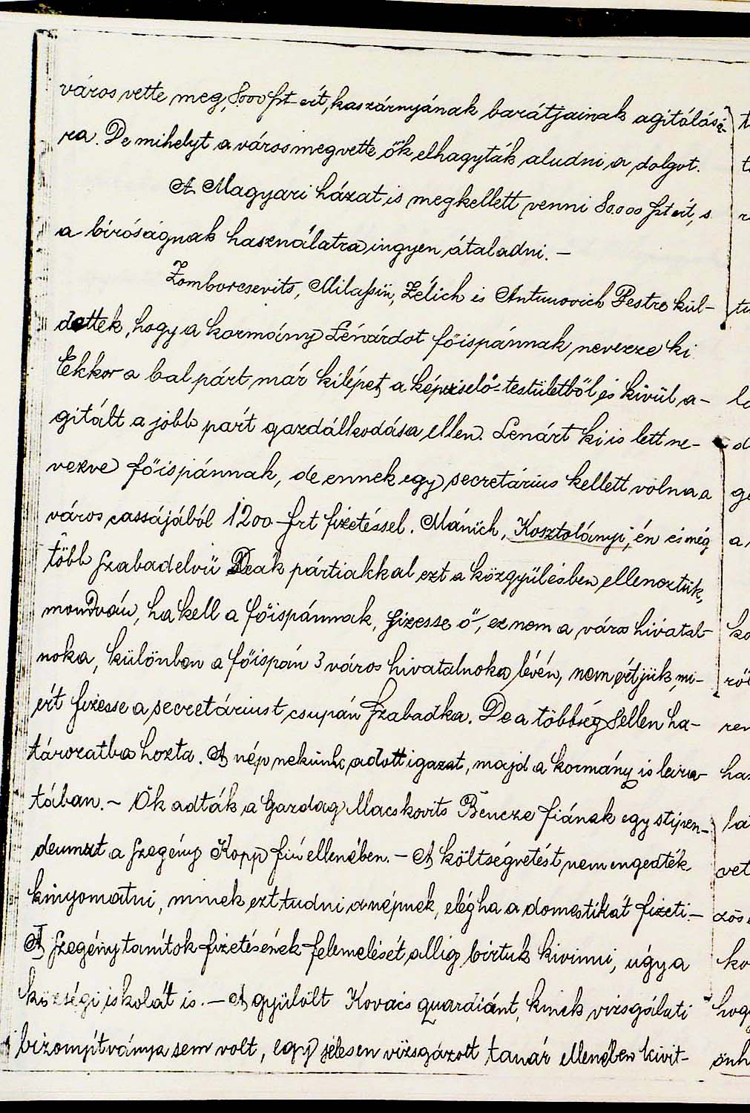 város vette meg, 8000 frt-ért, kaszárnyának barátjainak agitálásá-
ra. De mihelyt a város megvette ők elhagyták aludni a dolgot.
A Magyari házat is megkellett venni 80.000 frt ért, s
a biróságnak használatra ingyen átaladni. –
Zomborcsevits, Milassin, Zélich és Antunovich Pestre kül-
döttek, hogy a kormány Lénárdot főispánnak nevezze ki
Ekkor a bal párt már kilépet a képviselő-testületből és kivül, a-
gitált a jobb párt gazdálkodása ellen. Lenárt ki is lett ne-
vezve főispánnak, de ennek egy secretárius kellett volna a
város cassájából 1200 frt fizetéssel. Mánich, Kosztolányi, én és még
több szabadelvü Deák pártiakkal ezt a közgyülésben elleneztük,
mondván, ha kell a főispánnak, fizesse ő, ez nem a város hivatal-
noka, különben a főispán 3 város hivatalnoka lévén, nem értjük, mi-
ért fizesse a secretáriust csupán Szabadka. De a többség ellen ha-
tározatba hozta. A nép nekünk adott igazat, majd a kormány is leira-
tában. – Ők adták a Gazdag Macskovits Bencze fiának egy stipen-
deumat a szegény Kopp fiu ellenében. – A költségvetést nem engedték
kinyomatni, minek ezt tudni a népnek, elég ha a domestikát fizeti. –
A szegény tanitok fizetésének felemelését allig birtuk kivinni, ugy a
községi iskolát is. – A gyülölt Kovacs quardiánt, kinek vizsgálati
bizonyítványa sem volt, egy jelesen vizsgázott tanár ellenében kivit-